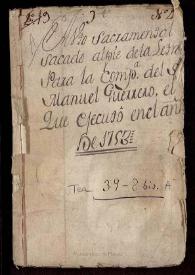 Nº 2
Auto Sacramental
Sacado al pie de la Letra
Para la Compª. del S
Manuel Guerrero, el
Que ejecutó en el año
De 1752
Tea 39-8 bis. A